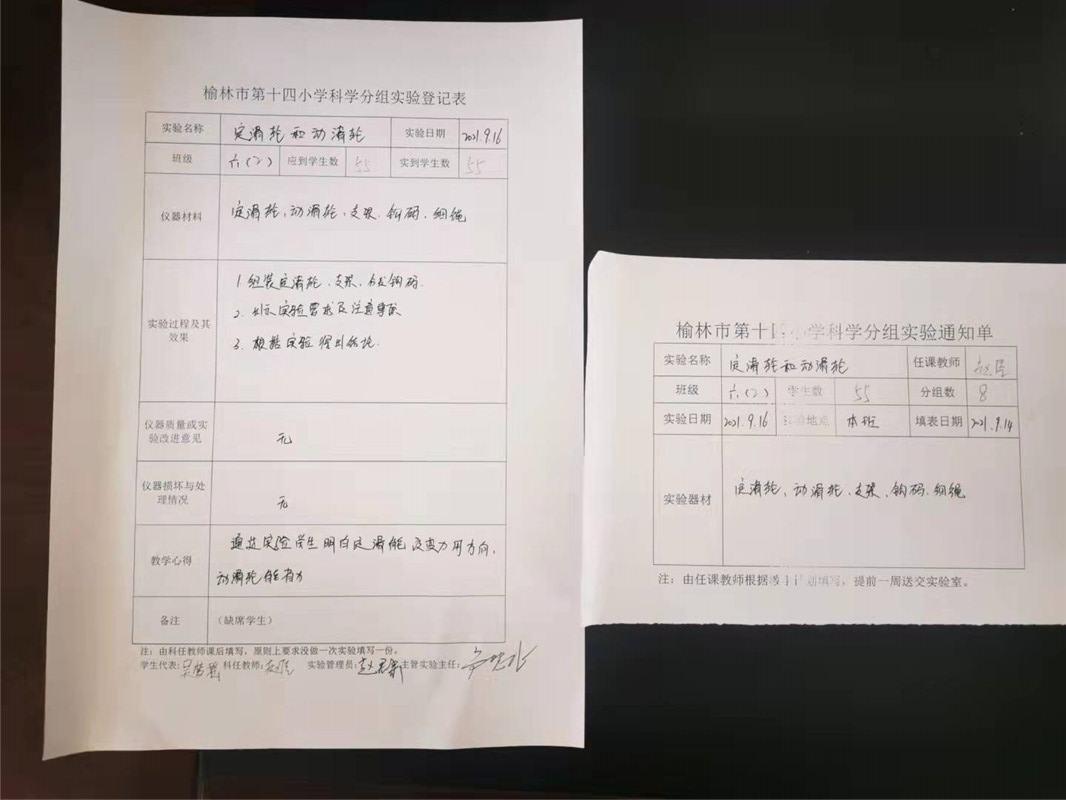 榆林市第十四小学科学分组实验登记表
实验名称 定滑轮和动滑轮 实验日期 2021.9.16
班级 六(2) 应到学生数 55 实到学生数 55
仪器材料 定滑轮、动滑轮、支架、钩码、细绳
实验过程及其效果
1.组装定滑轮、支架、分发钩码.
2.出示实验要求及注意事项
3.根据实验得出结论.
仪器质量或实验改进意见 无
仪器损坏与处理情况 无
教学心得 通过实验学生明白定滑轮改变力用方向,
动滑轮能省力
备注 (缺席学生)
注:由科任教师课后填写,原则上要求没做一次实验填写一份。
学生代表: 科任教师: 实验管理员: 主管实验主任:
榆林市第十四小学科学分组实验通知单
实验名称 定滑轮和动滑轮 任课教师
班级 六(2) 学生数 55 分组数 8
实验日期 2021.9.16 实验地点 本班 填表日期 2021.9.14
实验器材 定滑轮、动滑轮、支架、钩码、细绳
注:由任课教师根据教学计划填写,提前一周送交实验室。